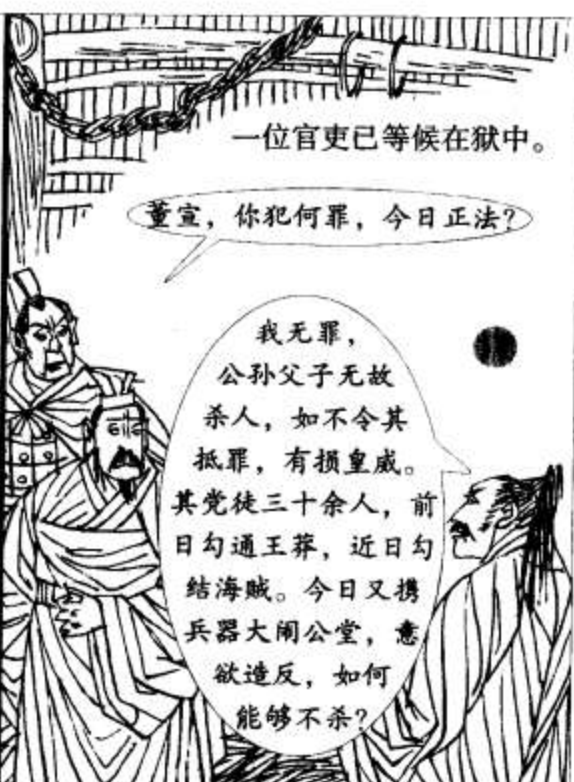 一位官吏已等候在狱中。
董宣，你犯何罪，今日正法？
我无罪，
公孙父子无故
杀人，如不令其
抵罪，有损皇威。
其党徒三十余人，前
日勾通王莽，近日勾
结海贼。今日又携
兵器大闹公堂，意
欲造反，如何
能够不杀？